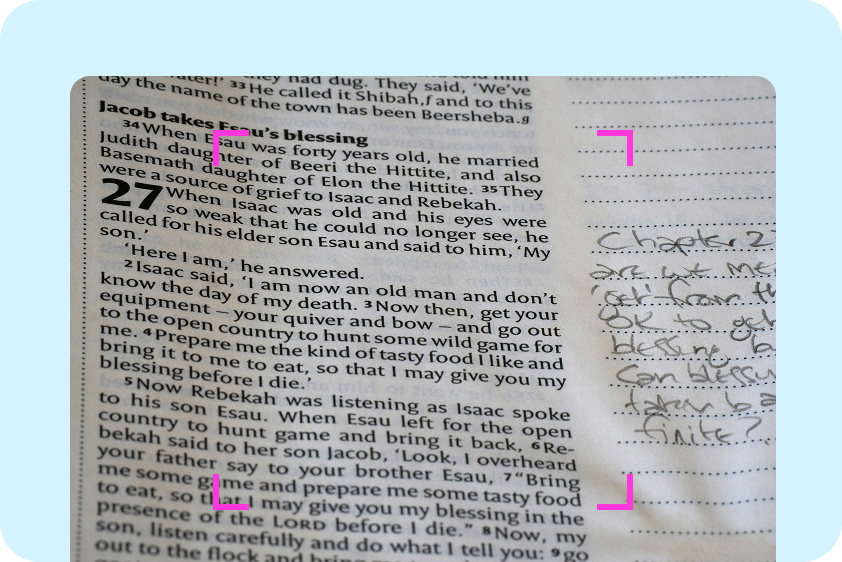 they had dug. They said, ‘We’ve
day the name of the town has been Beersheba.g
33 He called it Shibah,f and to this
Jacob takes Esau’s blessing
34 When Esau was forty years old, he married
Judith daughter of Beeri the Hittite, and also
Basemath daughter of Elon the Hittite. 35 They
were a source of grief to Isaac and Rebekah.
27 When Isaac was old and his eyes were
so weak that he could no longer see, he
called for his elder son Esau and said to him, ‘My
son.’
‘Here I am,’ he answered.
2 Isaac said, ‘I am now an old man and don’t
know the day of my death. 3 Now then, get your
equipment – your quiver and bow – and go out
to the open country to hunt some wild game for
me. 4 Prepare me the kind of tasty food I like and
bring it to me to eat, so that I may give you my
blessing before I die.’
5 Now Rebekah was listening as Isaac spoke
to his son Esau. When Esau left for the open
country to hunt game and bring it back, 6 Re-
bekah said to her son Jacob, ‘Look, I overheard
your father say to your brother Esau, 7 “Bring
me some game and prepare me some tasty food
to eat, so that I may give you my blessing in the
presence of the LORD before I die.” 8 Now, my
son, listen carefully and do what I tell you: 9 go
out to the flock and bring me
Chapter 2
are we
‘get’ from th
OK to
blessing b
Can
taken ba
finite?